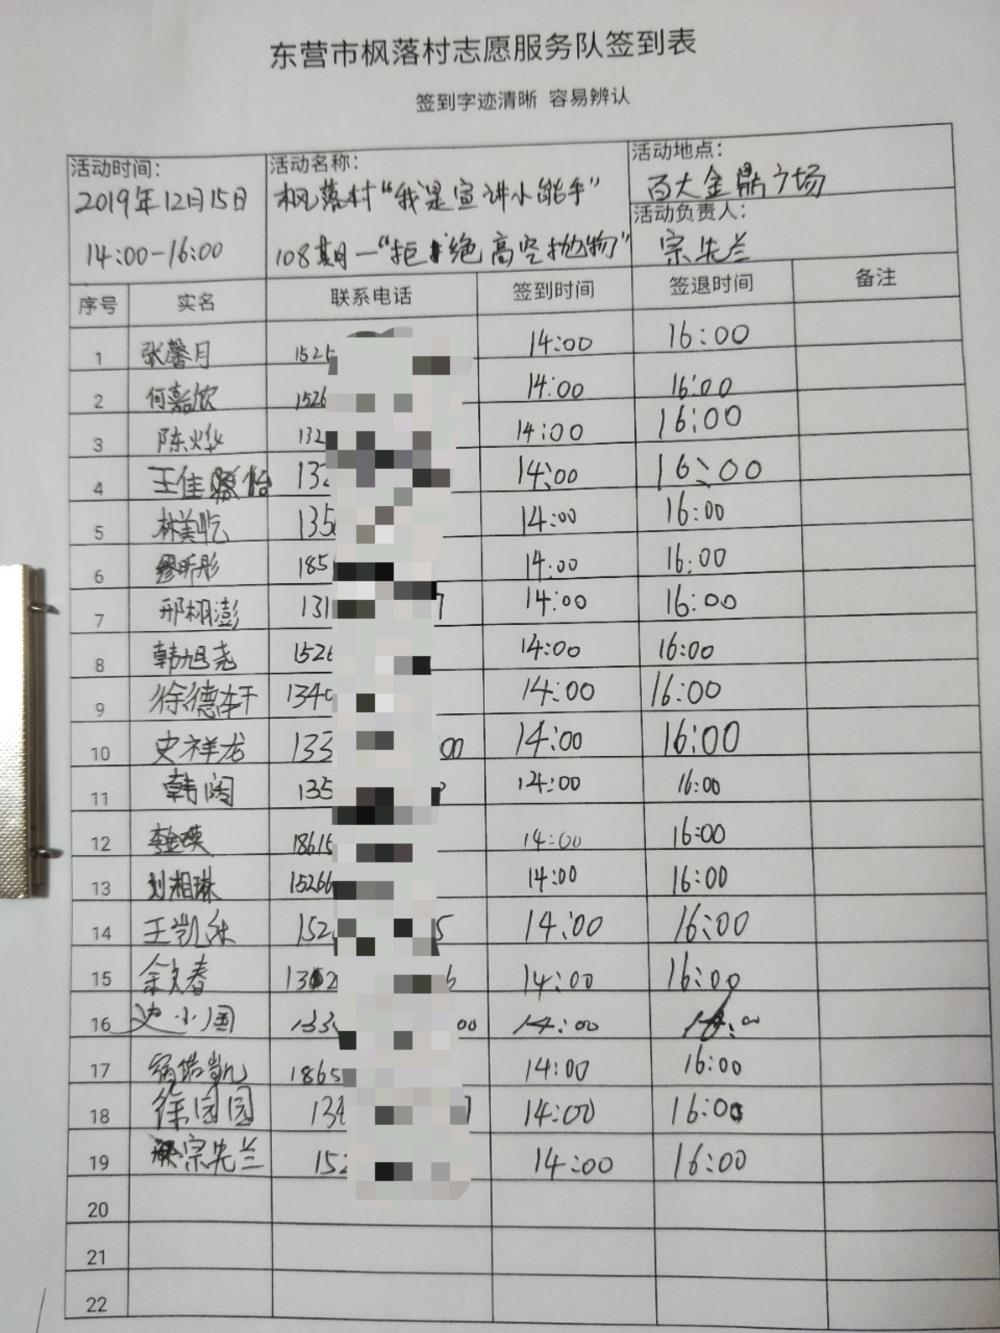 东营市枫落村志愿服务队签到表
签到字迹清晰 容易辨认
活动时间：
2019年12月15日
14:00-16:00
活动名称：
枫落村“我是宣讲小能手”
108期—“拒绝高空抛物”
活动地点：
百大金鼎广场
活动负责人：
宗先兰
序号 实名 联系电话 签到时间 签退时间 备注
1 张馨月 1525 14:00 16:00
2 何嘉欣 1526 14:00 16:00
3 陈烨 132 14:00 16:00
4 王佳怡 132 14:00 16:00
5 林美屹 135 14:00 16:00
6 缪昕彤 185 14:00 16:00
7 邢栩澎 131 7 14:00 16:00
8 韩旭尧 1526 14:00 16:00
9 徐德轩 1340 14:00 16:00
10 史祥龙 133 00 14:00 16:00
11 韩阔 135 14:00 16:00
12 李金瑛 18615 14:00 16:00
13 刘相琳 15266 14:00 16:00
14 王凯乐 152 5 14:00 16:00
15 余文春 14:00 16:00
16 史小国 133 00 14:00
17 1865 14:00 16:00
18 徐园园 134 14:00 16:00
19 宗先兰 152 14:00 16:00
20
21
22